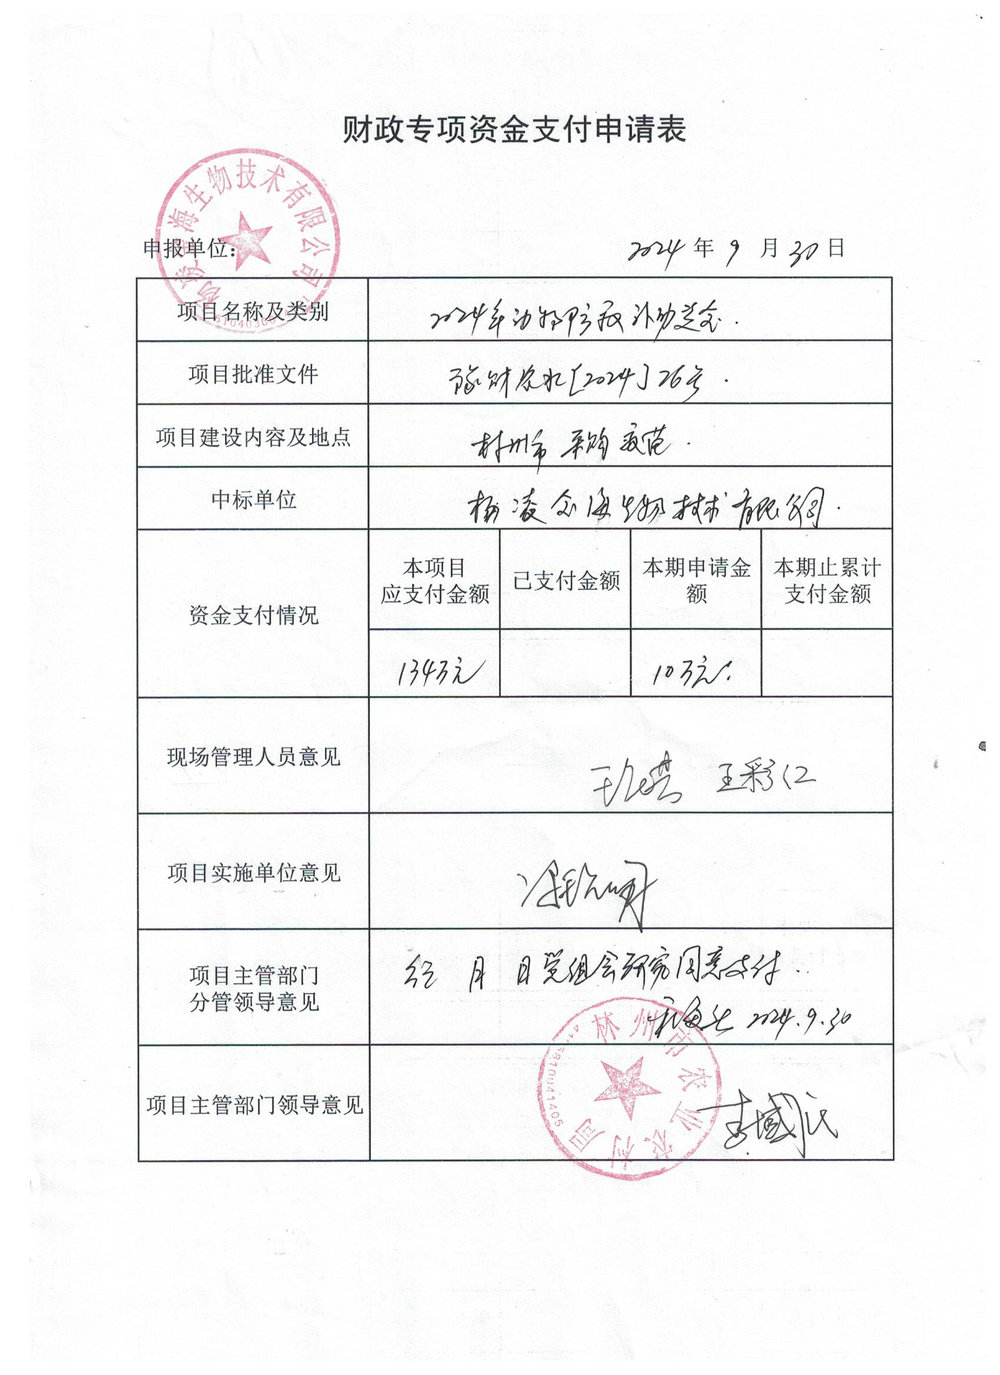 财政专项资金支付申请表
生物技术有限公司
申报单位:
2024 年 9 月 30 日
项目名称及类别
2024年动物防疫补助资金.
项目批准文件
豫财农水[2024]26号.
项目建设内容及地点
林州市 采购疫苗.
中标单位
杨凌金海生物技术有限公司.
资金支付情况
本项目
应支付金额
已支付金额
本期申请金
额
本期止累计
支付金额
134万元
10万元
现场管理人员意见
王彩红
项目实施单位意见
项目主管部门
分管领导意见
经 月 日党组会研究同意支付.
2024.9.30
林州市农业农村局
项目主管部门领导意见